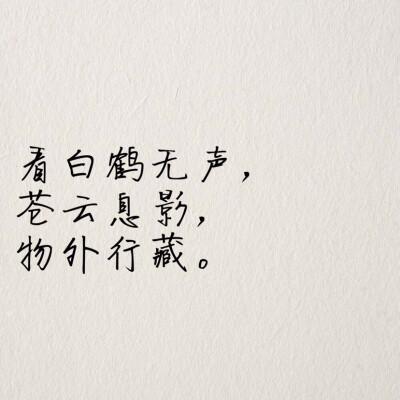 看白鹤无声，
苍云息影，
物外行藏。